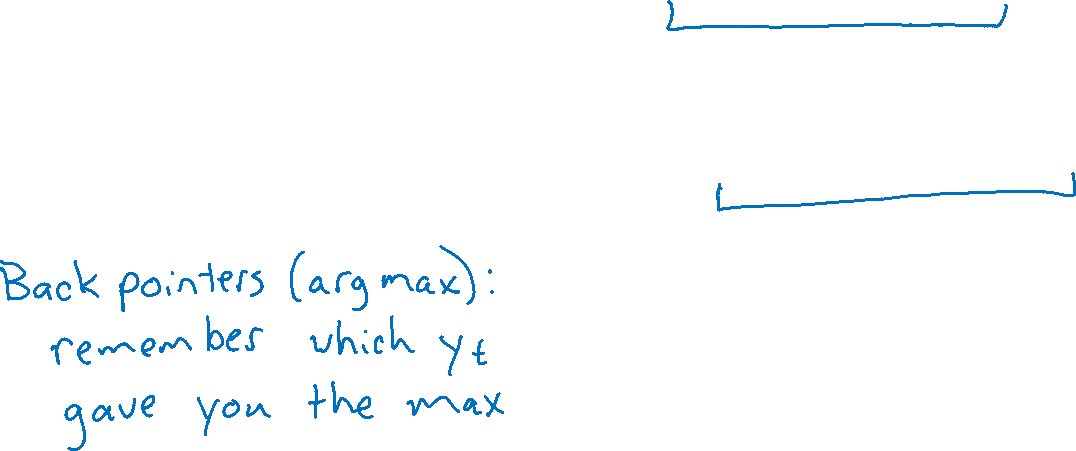 Back pointers (arg max):
remember which y_t
gave you the max